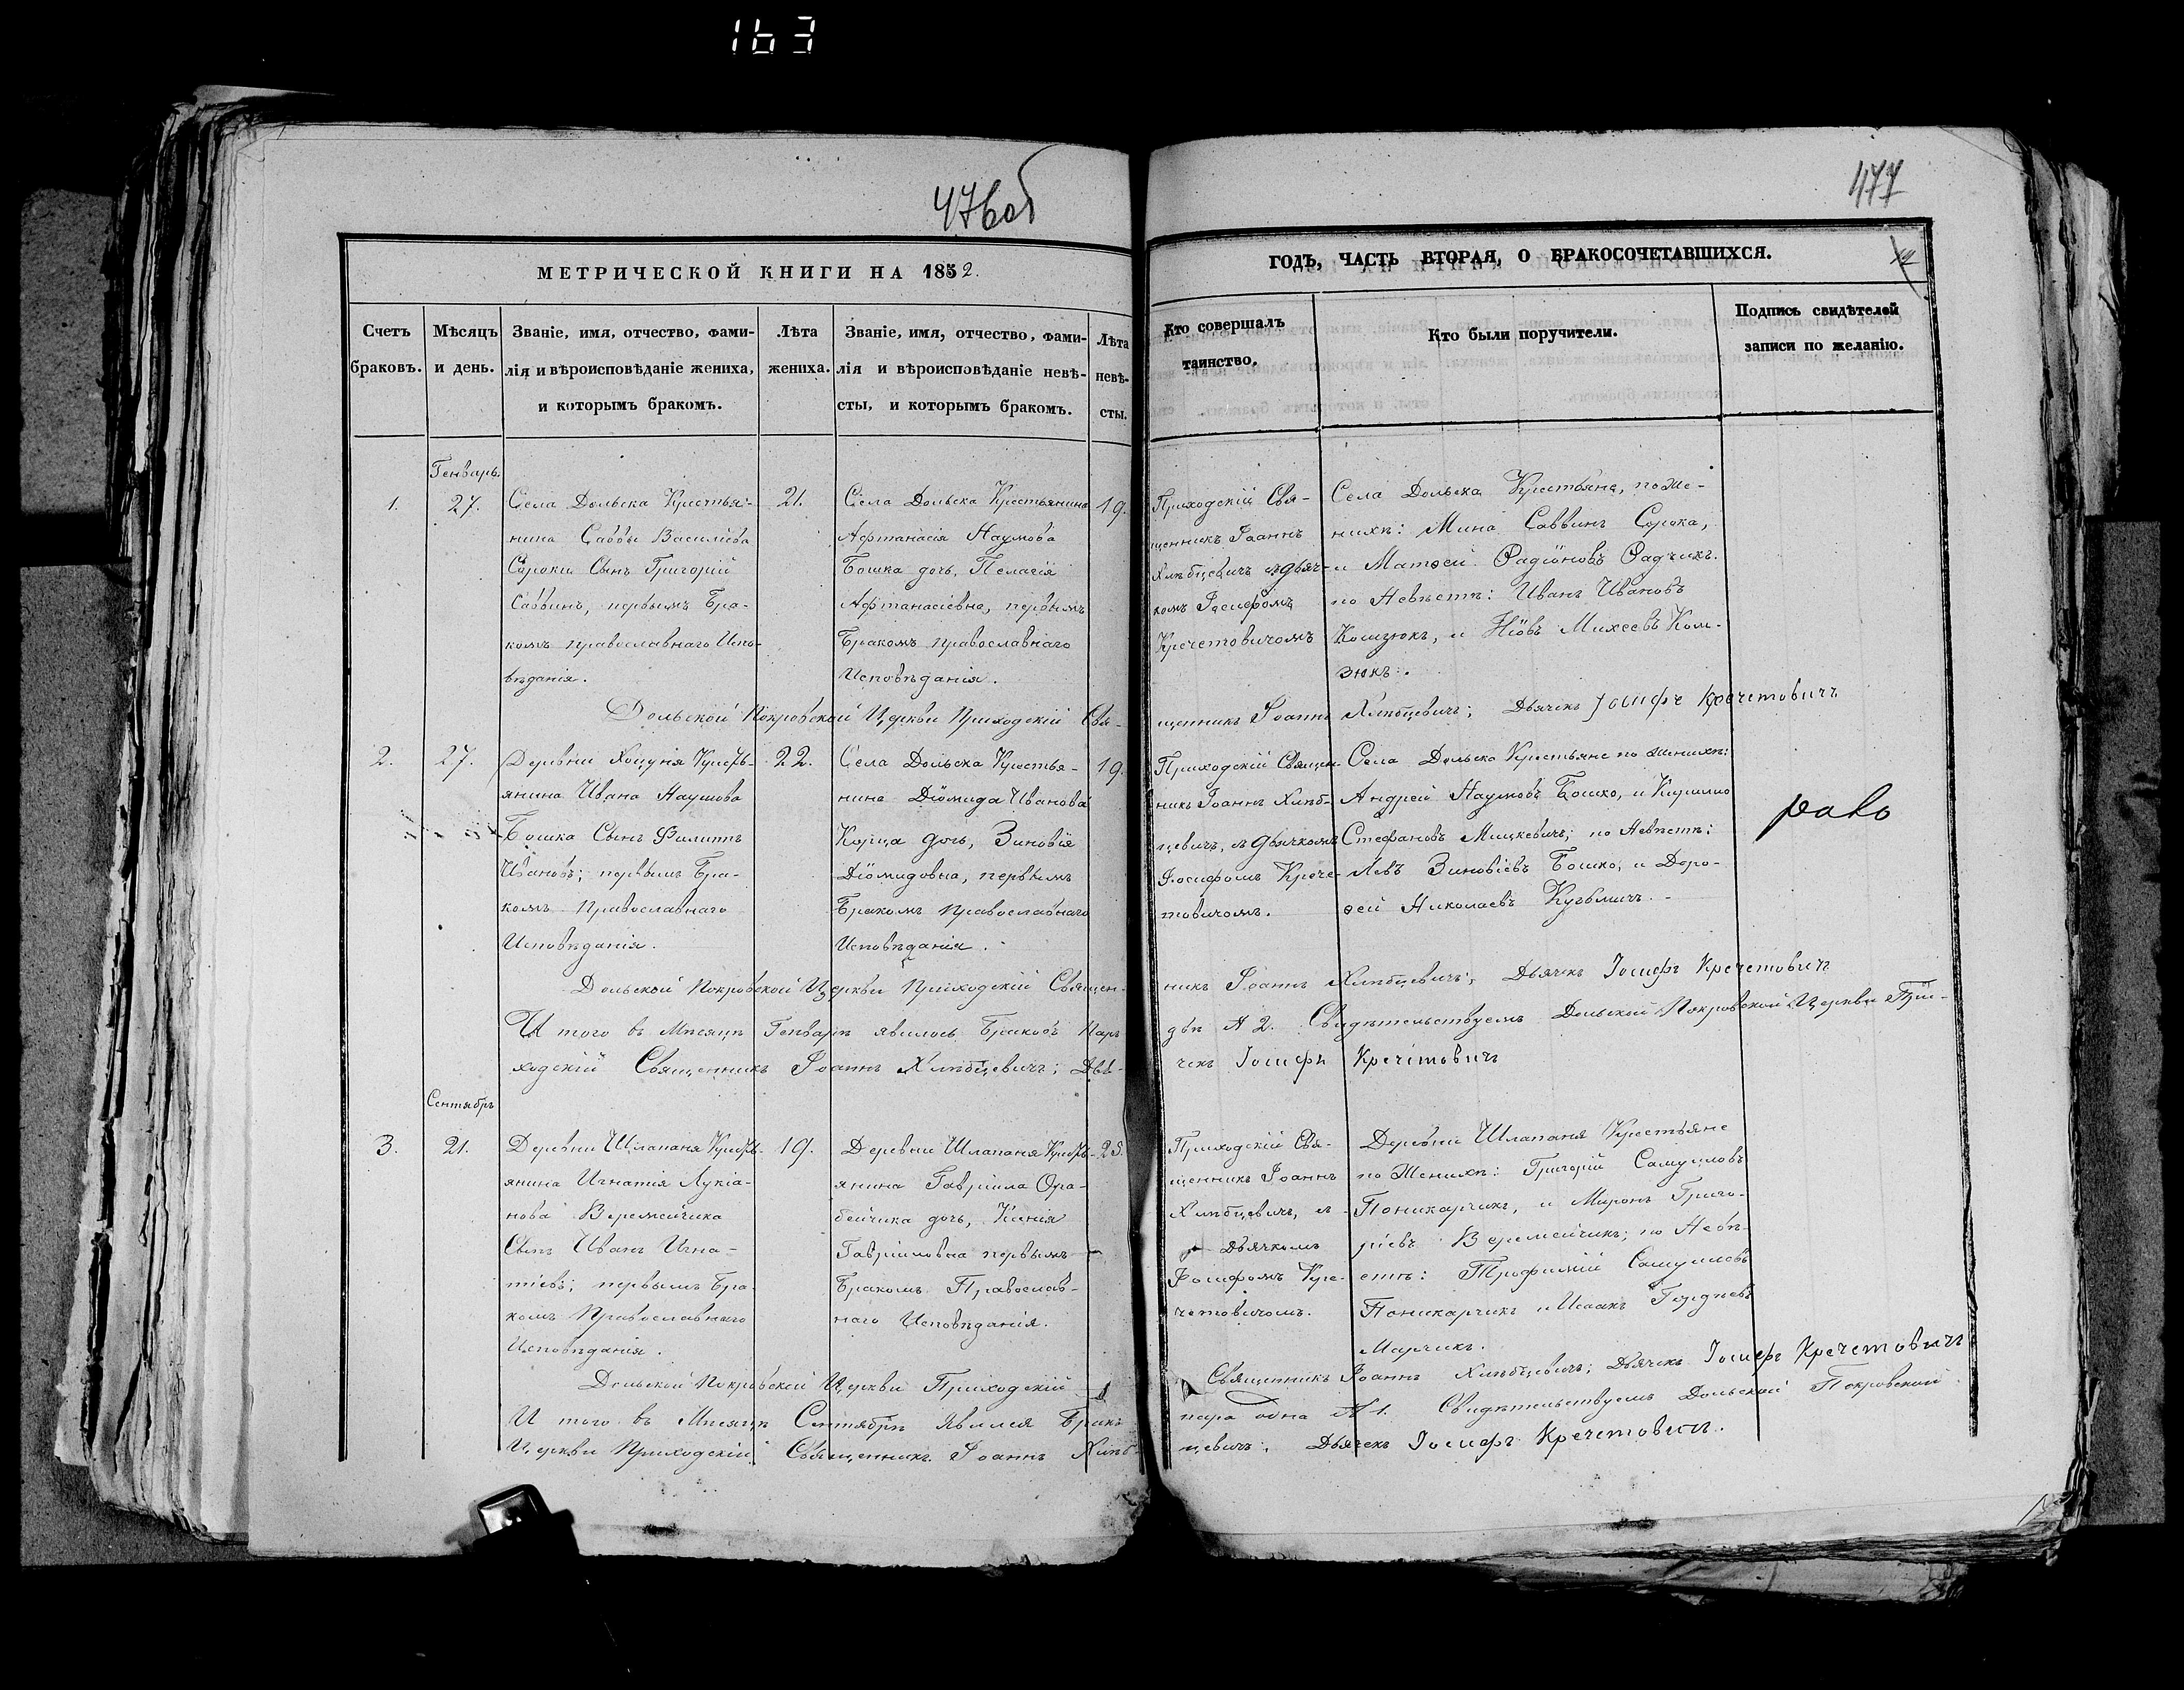 163
476об
477
МЕТРИЧЕСКОЙ КНИГИ НА 1852.
ГОДЪ, ЧАСТЬ ВТОРАЯ, О БРАКОСОЧЕТАВШИХСЯ.
Счетъ
браковъ.
Мѣсяцъ
и день.
Званіе, имя, отчество, фами-
лія и вѣроисповѣданіе жениха,
и которымъ бракомъ.
Лѣта
жениха.
Званіе, имя, отчество, фами-
лія и вѣроисповѣданіе невѣ-
сты, и которымъ бракомъ.
Лѣта
невѣ-
сты.
Кто совершалъ
таинство.
Кто были поручители.
Подпись свидѣтелей
записи по желанію.
Генварь.
1.
27.
Села Дольска Крестья-
нина Саввы Василіева
Сороки Сынъ Григорій
Саввинъ, первымъ Бра-
комъ православнаго Испо-
вѣданія.
21.
Села Дольска Крестьянина
Афтанасія Наумова
Бошка дочь, Пелагія
Афтанасіевна, первымъ
Бракомъ православнаго
Исповѣданія.
19.
Приходскій Свя-
щенникъ Іоаннъ
Хлѣбцевичъ съ дьяч-
комъ Іосифомъ
Кречетовичомъ
Села Дольска Крестьяне, по Же-
нихѣ: Мина Саввинъ Сорока,
и Матѳей Радіоновъ Радчикъ.
по Невѣстѣ: Иванъ Ивановъ
Комзюкъ, и Іовъ Михеевъ Ком-
зюкъ.
Дольской Покровской Церкви Приходскій Свя-
щенникъ Іоаннъ Хлѣбцевичъ; Дьячекъ Іосифъ Кречетовичъ
2.
27.
Деревни Хоцуня Кресть-
янина Ивана Наумова
Бошка Сынъ Филиппъ
Ивановъ; первымъ Бра-
комъ Православнаго
Исповѣданія.
22.
Села Дольска Крестья-
нина Діомида Иванова
Корца дочь, Зиновія
Діомидовна, первымъ
Бракомъ Православнаго
Исповѣданія.
19.
Приходскій Священ-
никъ Іоаннъ Хлѣб-
цевичъ, съ дьячкомъ
Іосифомъ Крече-
товичомъ.
Села Дольска Крестьяне по Женихѣ:
Андрей Наумовъ Бошко, и Кирилло
Стефановъ Мицкевичъ; по Невѣстѣ:
Левъ Зиновіевъ Бошко, и Доро-
ѳей Николаевъ Кузьмичъ.
Дольской Покровской Церкви Приходскій Священ-
никъ Іоаннъ Хлѣбцевичъ; Дьячекъ Іосифъ Кречетовичъ
И того въ Мѣсяцѣ Генварѣ явилось Браковъ Паръ
двѣ № 2. Свидѣтельствуемъ Дольской Покровской Церкви При-
ходскій Священникъ Іоаннъ Хлѣбцевичъ; Дья-
чекъ Іосифъ Кречетовичъ
Сентябрь
3.
21.
Деревни Шлапаня Кресть-
янина Игнатія Лукіа-
нова Веремейчика
Сынъ Иванъ Игна-
тіевъ; первымъ Бра-
комъ Православнаго
Исповѣданія.
19.
Деревни Шлапаня Кресть-
янина Гавріила Ора-
бейчика дочь, Ксенія
Гавріиловна первымъ
Бракомъ Православ-
наго Исповѣданія.
25.
Приходскій Свя-
щенникъ Іоаннъ
Хлѣбцевичъ, съ
Дьячкомъ
Іосифомъ Кре-
четовичомъ.
Деревни Шлапаня Крестьяне
по Женихѣ: Григорій Самуиловъ
Поникарчикъ, и Миронъ Григо-
ріевъ Веремейчикъ; по Невѣ-
стѣ: Трофимій Самуиловъ
Поникарчикъ и Исаакъ Гордѣевъ
Марчикъ.
Дольской Покровской Церкви Приходскій
Священникъ Іоаннъ Хлѣбцевичъ; Дьячекъ Іосифъ Кречетовичъ
И того въ Мѣсяцѣ Сентябрѣ Явился Бракъ
пара одна № 1. Свидѣтельствуемъ Дольской Покровской
Церкви Приходскій Священникъ Іоаннъ Хлѣб-
цевичъ; Дьячекъ Іосифъ Кречетовичъ.